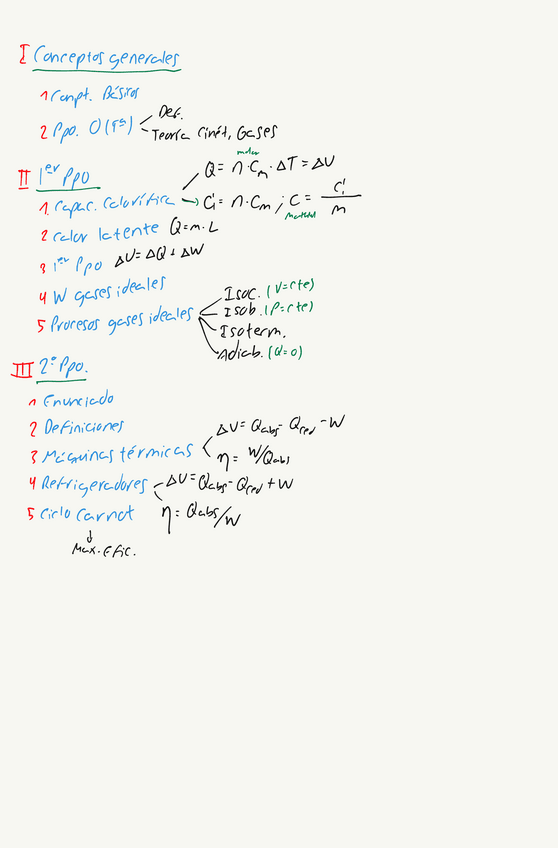 I Conceptos generales
1 Conpt. Básicos
2 Ppo. O (Tª) Def.
Teoría Cinét. Gases
II 1er Ppo
Q = n·Cm·ΔT = ΔU
molar
1. Capac. Calorífica → C = n·Cm ; c = C/m
material
2 Calor latente Q=m·L
3 1er Ppo ΔU=ΔQ+ΔW
4 W gases ideales
5 Procesos gases ideales
Isoc. (V=cte)
Isob. (P=cte)
Isoterm.
Adiab. (Q=0)
III 2º Ppo.
1 Enunciado
2 Definiciones
3 Máquinas térmicas
ΔU= Qabs - Qced - W
η = W/Qabs
4 Refrigeradores ΔU=Qabs-Qced+W
η = Qabs/W
5 Ciclo Carnot
↓
Max. Efic.